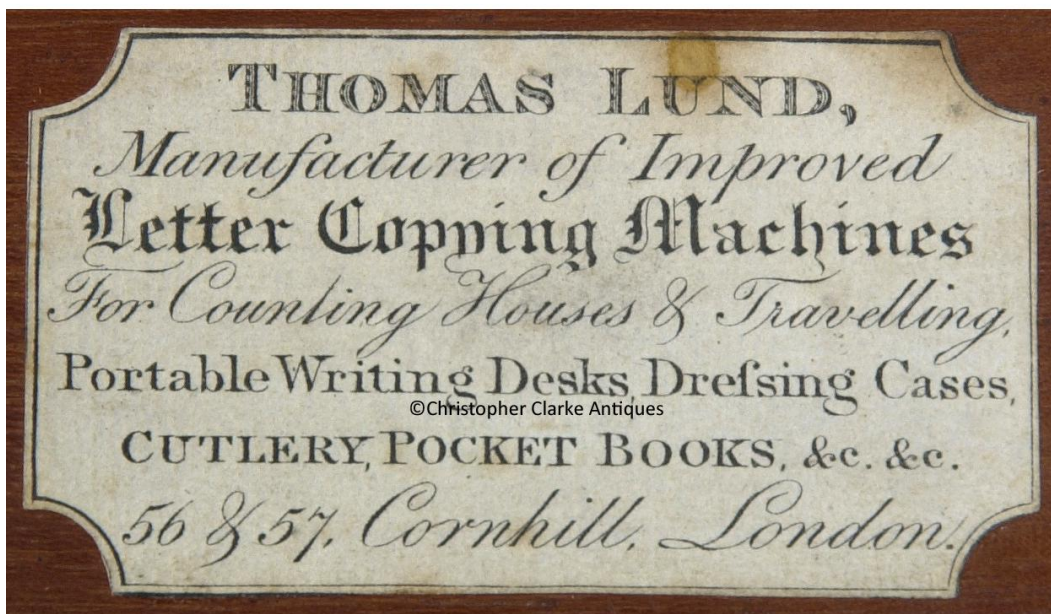 THOMAS LUND,
Manufacturer of Improved
Letter Copying Machines
For Counting Houses & Travelling,
Portable Writing Desks, Dreſsing Cases,
©Christopher Clarke Antiques
CUTLERY, POCKET BOOKS, &c. &c.
56 & 57, Cornhill, London.